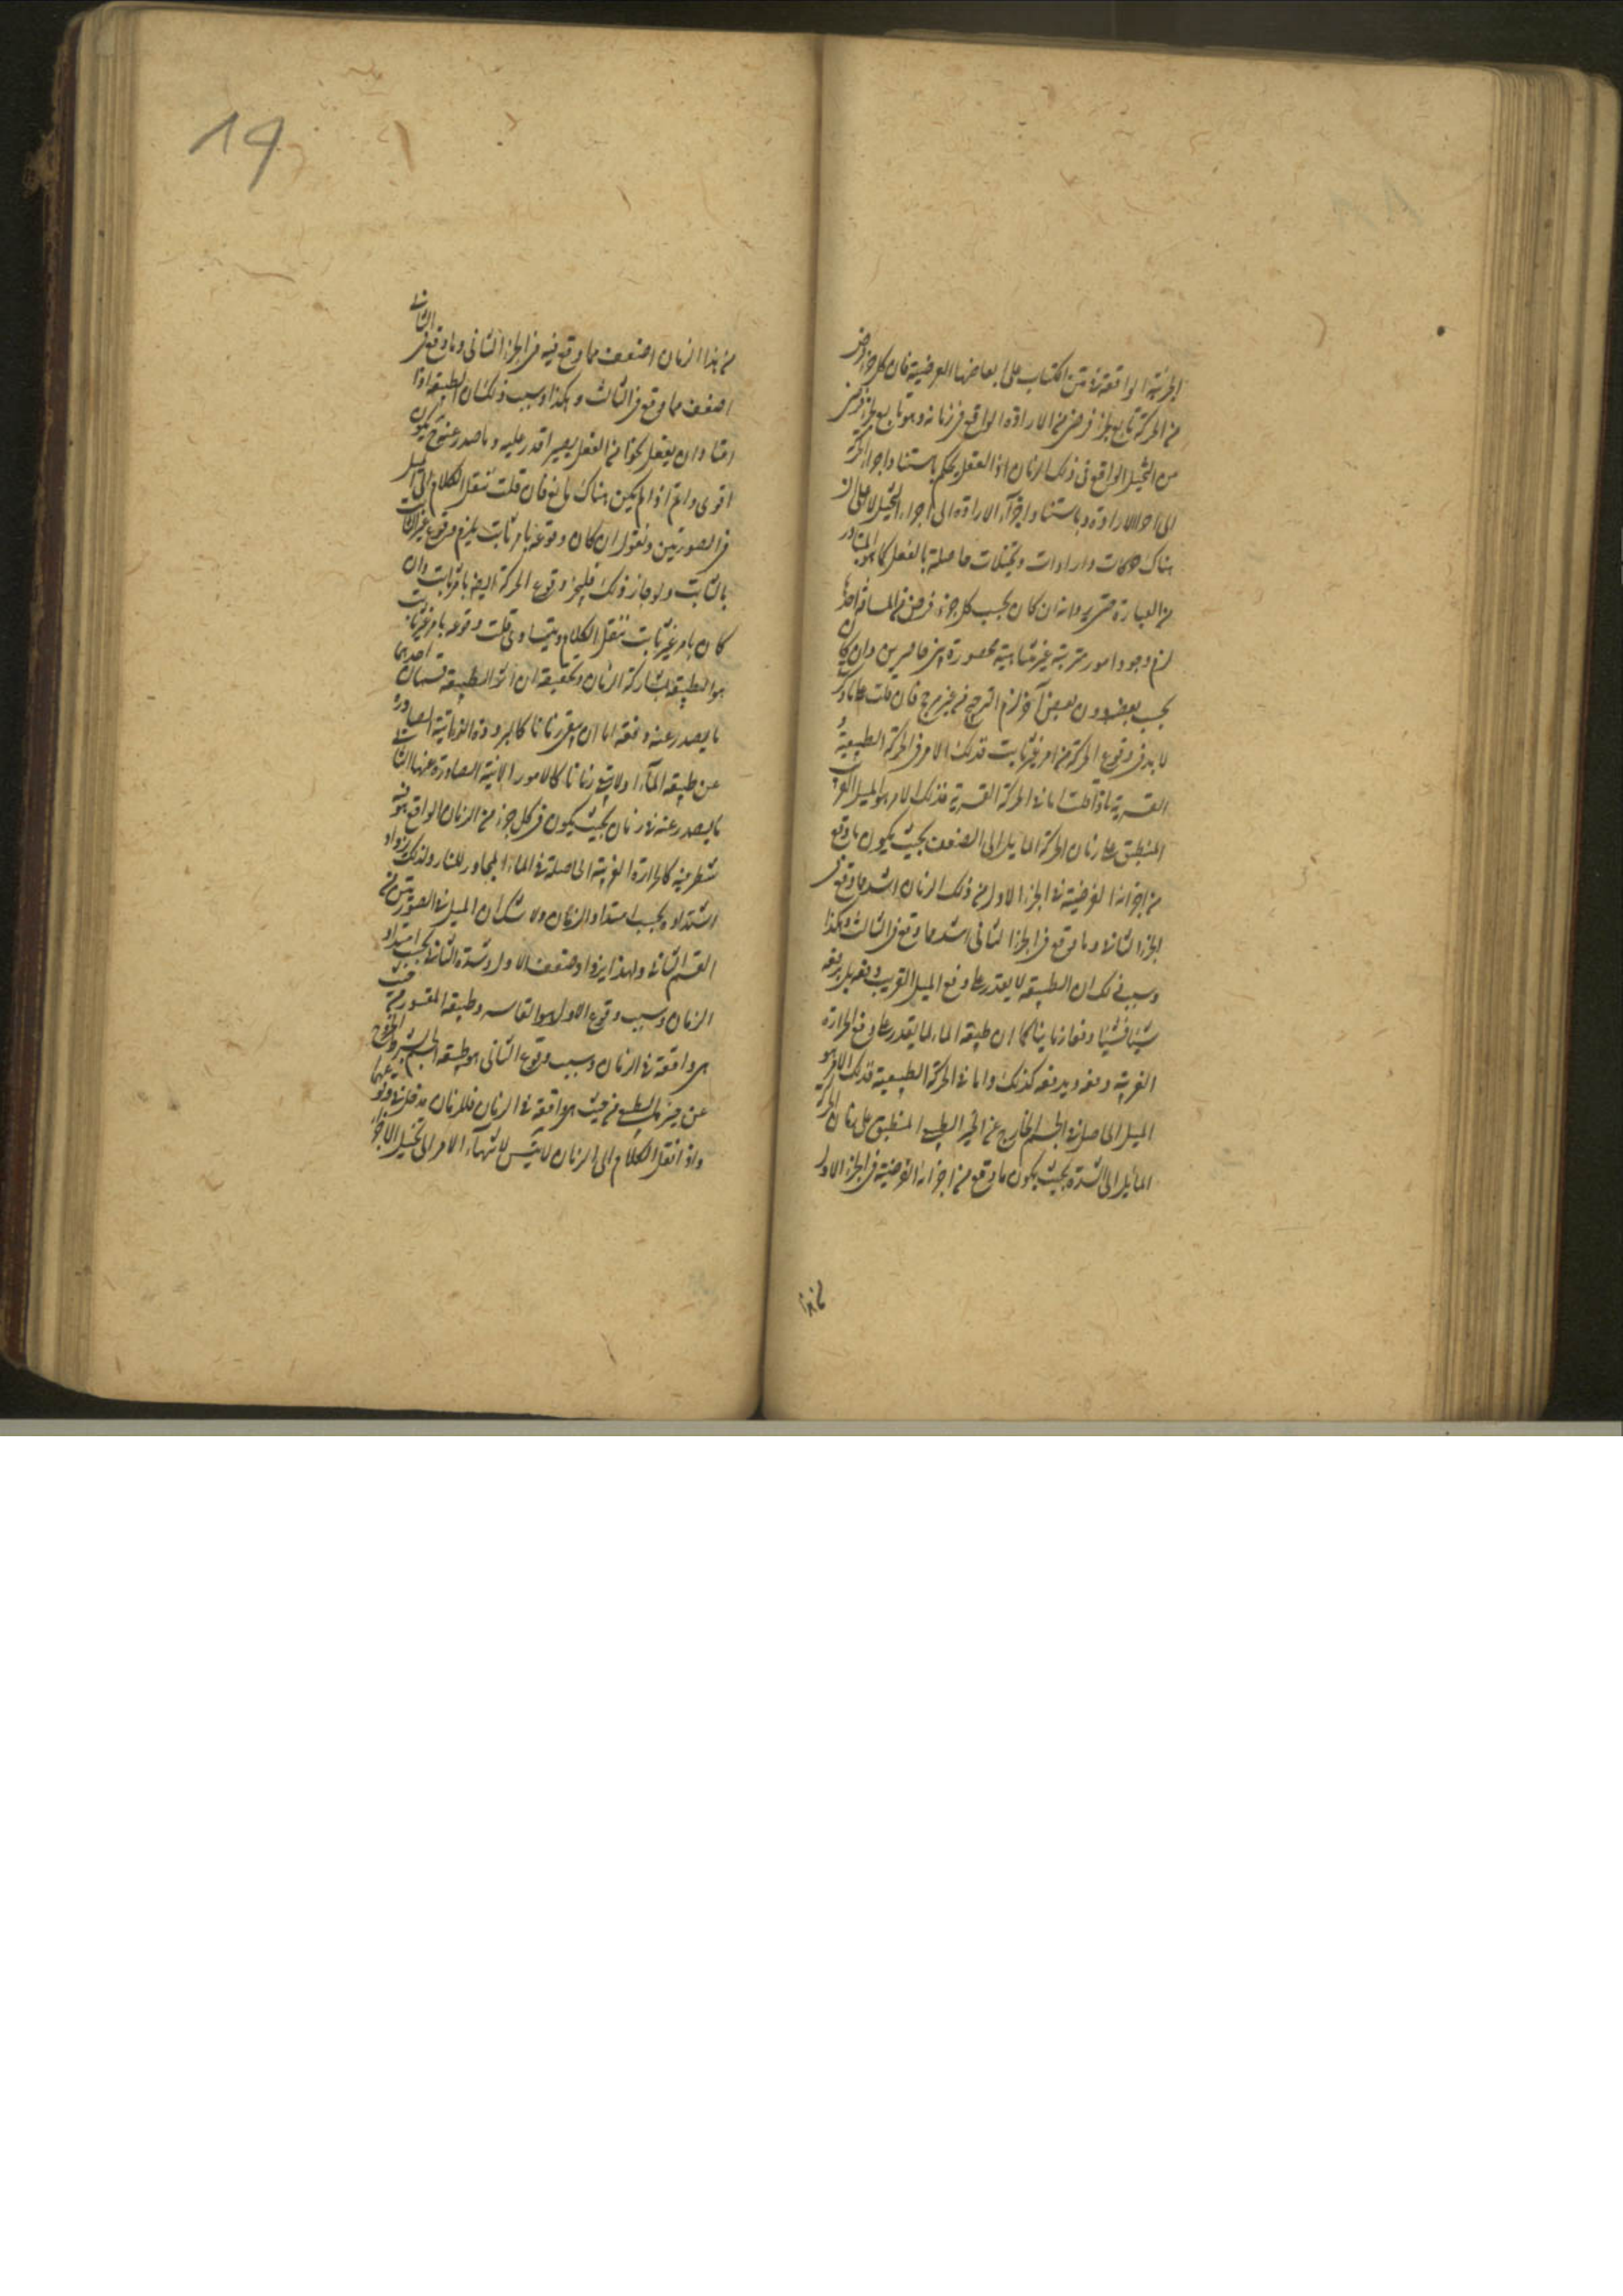 الجزئية الواقعة في متن الكتاب على ابعاضها الفرضية فان كل جزء فرض
من الحركة تابع لجزء فرض من الارادة الواقع في زمانه وهو تابع لجزء فرض
من التخيل الواقع في ذلك الزمان اذ العقل يحكم باستناد اجزاء الحركة
الى اجزاء الارادة وباستناد اجزاء الارادة الى اجزاء التخيل لا على ان
هناك حركات وارادات وتخيلات حاصلة بالفعل كما هو المتبادر
من العبارة حتى يرد انه ان كان بحسب كل جزء فرض في المسافة احدها
لزم وجود امور مترتبة غير متناهية محصورة بين حاصرين وان كان
بحسب بعض دون بعض آخر لزم الترجيح من غير مرجح فان قلت على ما ذكر
لا بد في وقوع الحركة من امر غير ثابت فذلك الامر في الحركة الطبيعية
القسرية ماذا قلت اما في الحركة القسرية فذلك الامر هو الميل الغريب
المنطبق على زمان الحركة المايل الى الضعف بحيث يكون ما وقع
من اجزائه الفرضية في الجزء الاول من ذلك الزمان اشد مما وقع في
الجزء الثاني وما وقع في الجزء الثاني اشد مما وقع في الثالث وهكذا
وسبب ذلك ان الطبيعة لا يقدر على دفع الميل الغريب دفعة بل يدفعه
شيئا فشيئا دفعا زمانيا كما ان طبيعة الماء لما يقدر على دفع الحرارة
الغريبة دفعة ويدفعه كذلك واما في الحركة الطبيعية فذلك الامر هو
الميل الحاصل في الجسم الخارج عن الحيز الطبيعي المنطبق على زمان الحركة
المايل الى الشدة بحيث يكون ما وقع من اجزائه الفرضية في الجزء الاول
من هذا
14
من هذا الزمان اضعف مما وقع فيه في الجزء الثاني وما وقع في الثاني
اضعف مما وقع في الثالث وهكذا وسبب ذلك ان الطبيعة اذا
اعتاد ان يفعل نحوا من الفعل يصير اقدر عليه وما صدر عنه ح يكون
اقوى واتم اذا لم يكن هناك مانع فان قلت ننقل الكلام الى الميل
في الصورتين ونقول ان كان وقوعه بامر ثابت يلزم وقوع غير الثابت
بالثابت ولو جاز ذلك فليجز وقوع الحركة ايضا بامر ثابت وان
كان بامر غير ثابت ننقل الكلام ويتمادى قلت وقوعه بامر غير ثابت
هو الطبيعة بمشاركة الزمان وتحقيقه ان آثار الطبيعة قسمان احدهما
ما يصدر عنه دفعة اما ان يبقى زمانا كالبرودة الذاتية الصادرة
عن طبيعة الماء او لا يبقى زمانا كالامور الآنية الصادرة عنها الثاني
ما يصدر عنه في زمان بحيث يكون في كل جزء من الزمان الواقع هو فيه
شطر منه كالحرارة الغريبة الحاصلة في الماء المجاور للنار ولذلك يزداد
اشتداده بحسب امتداد الزمان ولا شك ان الميل في الصورتين من
القسم الثاني ولهذا يزداد ضعف الاول وشدة الثاني بحسب امتداد
الزمان وسبب وقوع الاول هو القاسر وطبيعة المقسور من حيث
هي واقعة في الزمان وسبب وقوع الثاني هو طبيعة الجسم بشرط الخروج
عن حيزها الطبيعي من حيث هي واقعة في الزمان فللزمان مدخل في وقوعهما
واذا نقل الكلام الى الزمان لا يتسلسل لانتهاء الامر الى تخيل الاجزاء